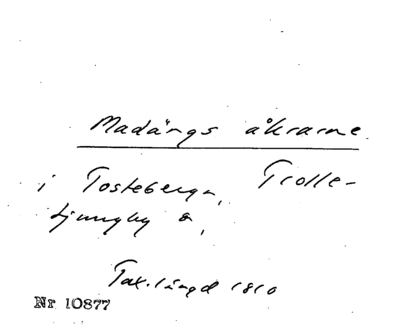 Madängs åkrarne
i Tosteberga, Trolle-
Ljungby s,
Tax.längd 1810
Nr 10877